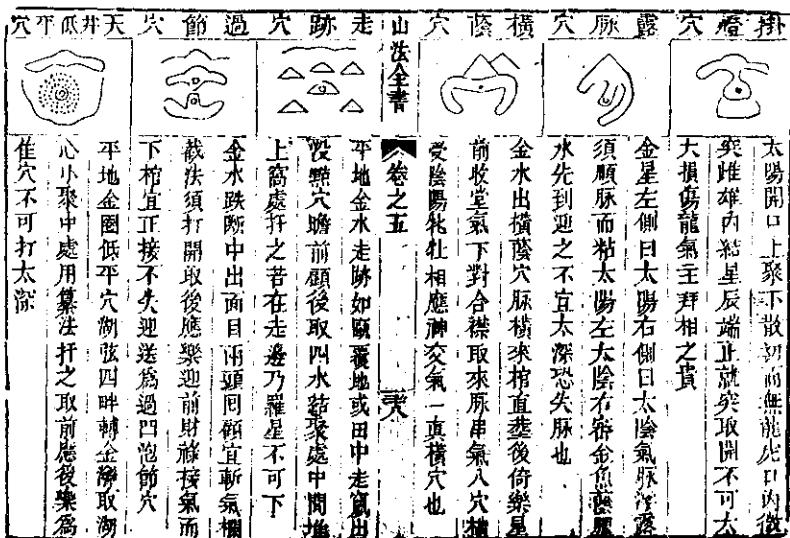 掛燈穴
太陽開口上聚下散初而無龍虎口內微
突雌雄內結星辰端正就突取開不可太
大損傷龍氣主拜相之貴
露脉穴
金星左側曰太陽右側曰太陰氣脉浮露
須順脉而粘太陽左太陰右審金魚蔭腮
水先到迎之不宜太深恐失脉也
橫蔭穴
金水出橫蔭穴脉橫來棺直塟後倚樂星
前收堂氣下對合襟取來脉串氣入穴橫
受陰陽牝牡相應神交氣一直橫穴也
山法全書
卷之五
走跡穴
平地金水走跡如甌覆地或田中走竄出
沒點穴瞻前顧後取四水結聚處中間堆
上窩處扦之若在走邊乃羅星不可下
過節穴
金水跌斷中出面目兩頭囘顧宜斬氣欄
截法須打開取後應樂迎前財祿接氣而
下棺宜正接不失迎送爲過凹泡節穴
天井低平穴
平地金圈低平穴湖弦四畔轉金瀞取湖
心小聚中處用纂法扦之取前應後樂爲
隹穴不可打太深